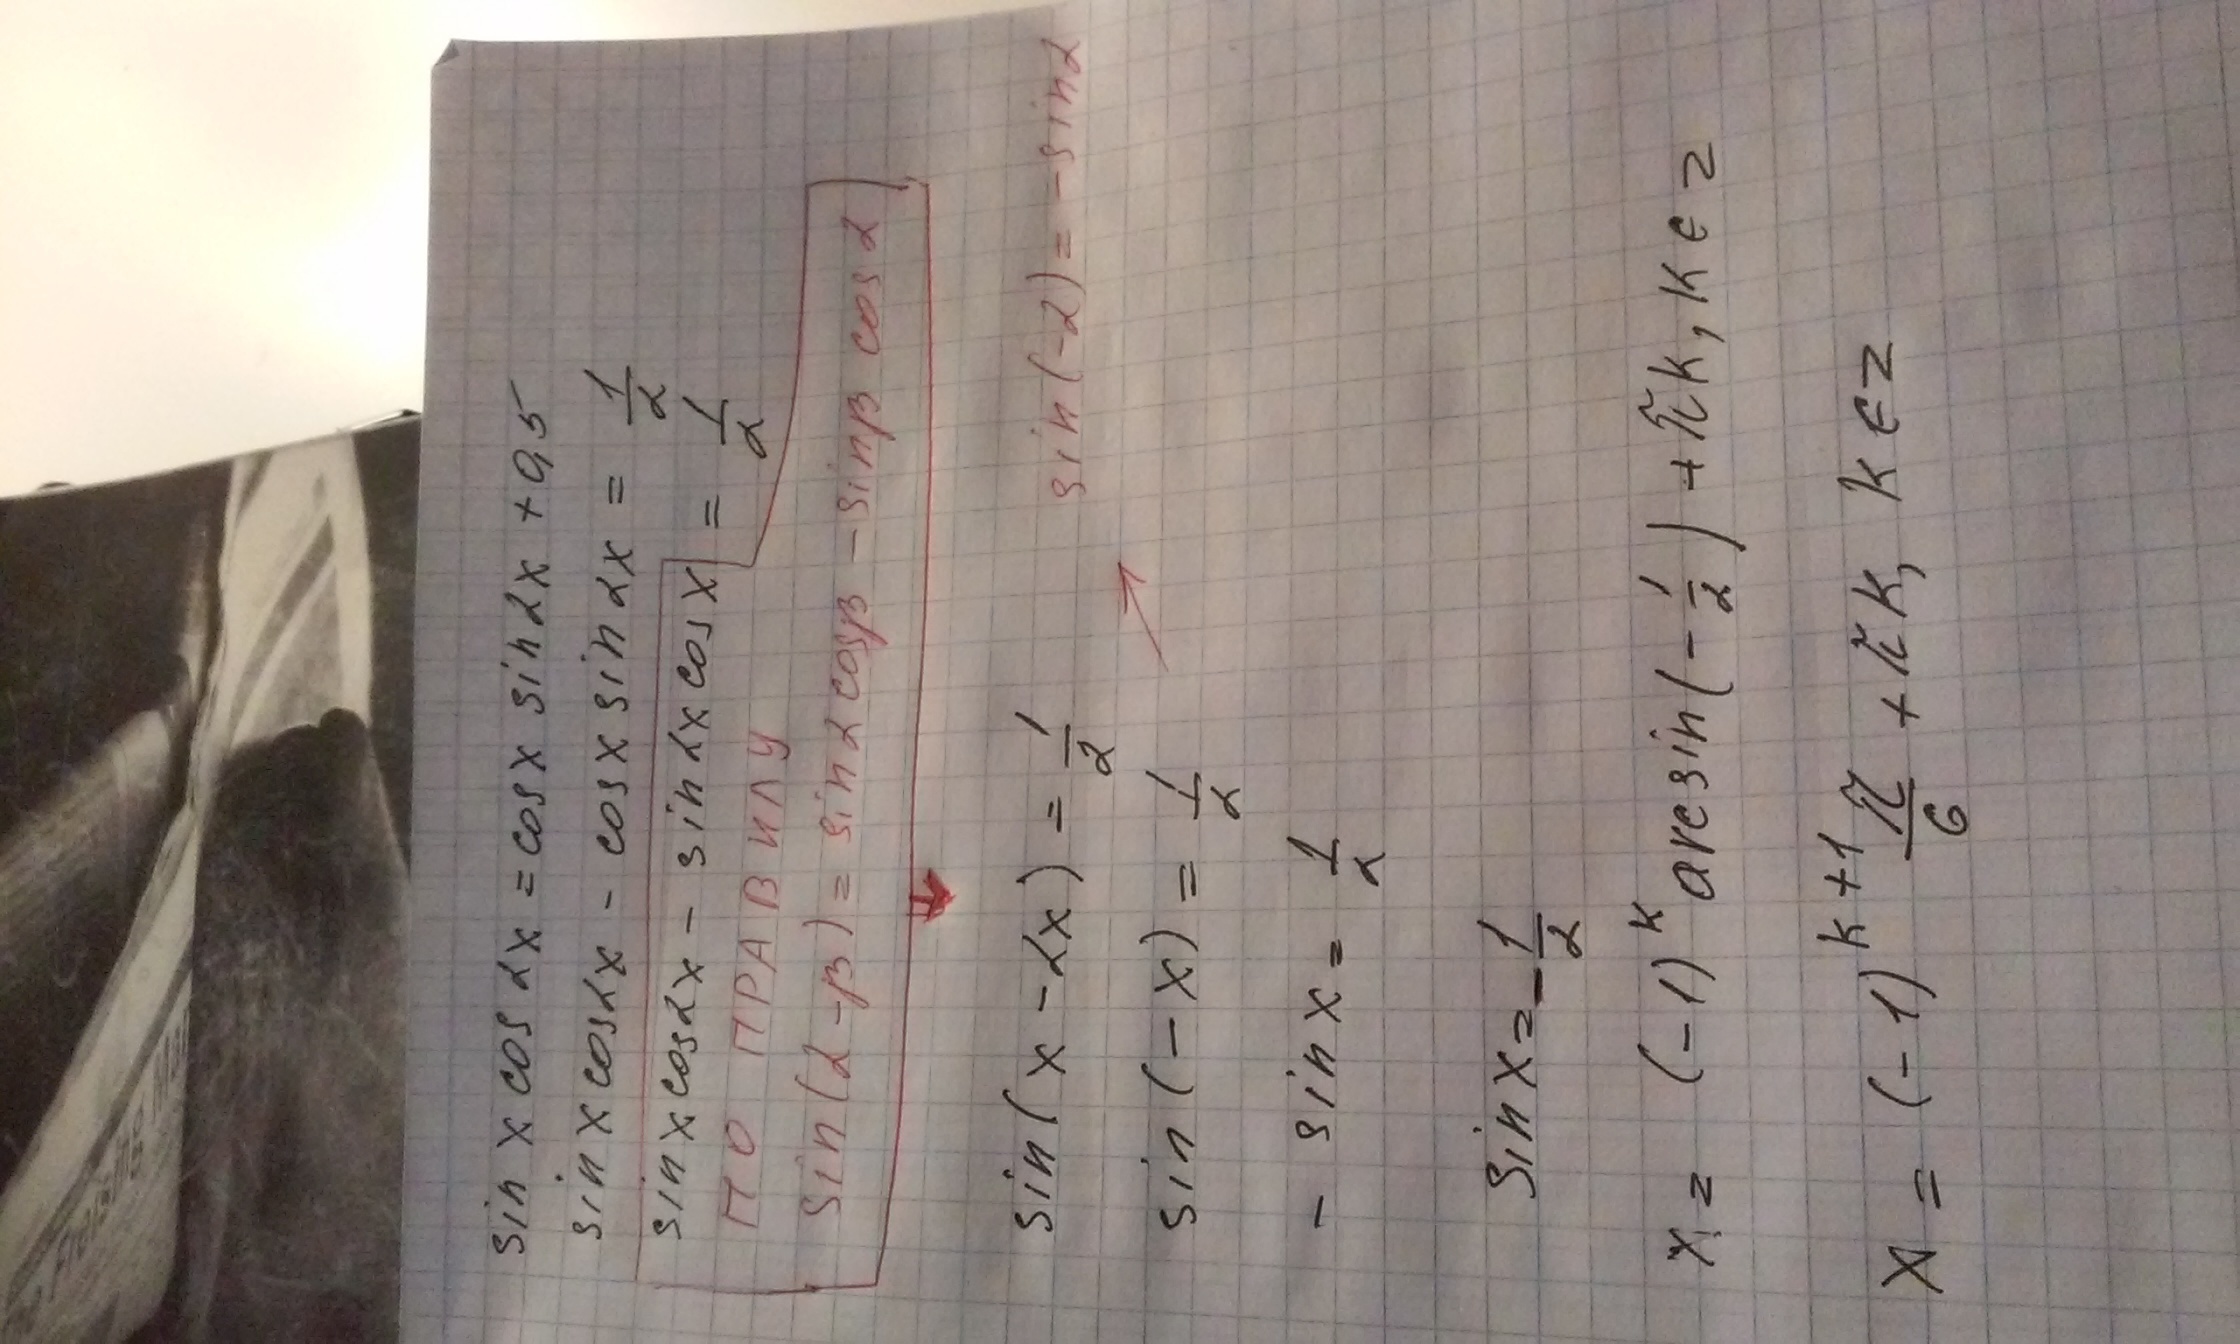 sin x cos 2x = cos x sin 2x + 0,5
sin x cos 2x - cos x sin 2x = 1/2
sin x cos 2x - sin 2x cos x = 1/2
ПО ПРАВИЛУ
sin(α-β) = sin α cos β - sin β cos α
sin(x-2x) = 1/2
sin(-α) = -sin α
sin(-x) = 1/2
- sin x = 1/2
sin x = -1/2
x = (-1)^k arcsin(-1/2) + πk, k ∈ z
x = (-1)^{k+1} π/6 + πk, k ∈ z